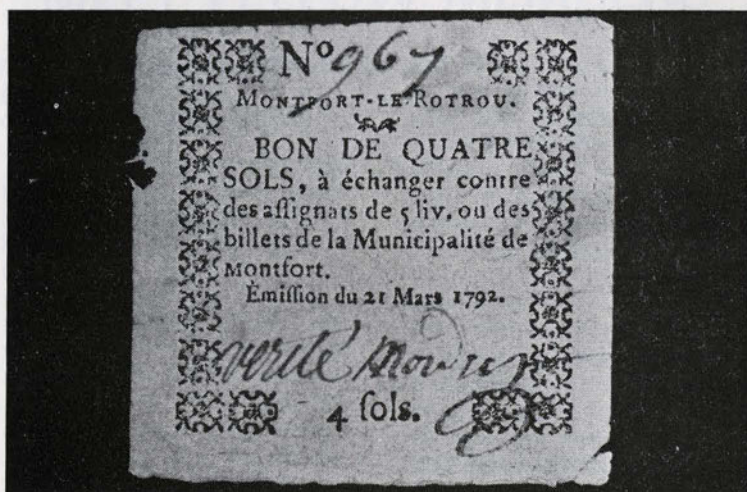 Nº 967
MONTFORT-LE-ROTROU.
BON DE QUATRE
SOLS, à échanger contre
des aſſignats de 5 liv. ou des
billets de la Municipalité de
Montfort.
Émiſſion du 21 Mars 1792.
verité
4 ſols.